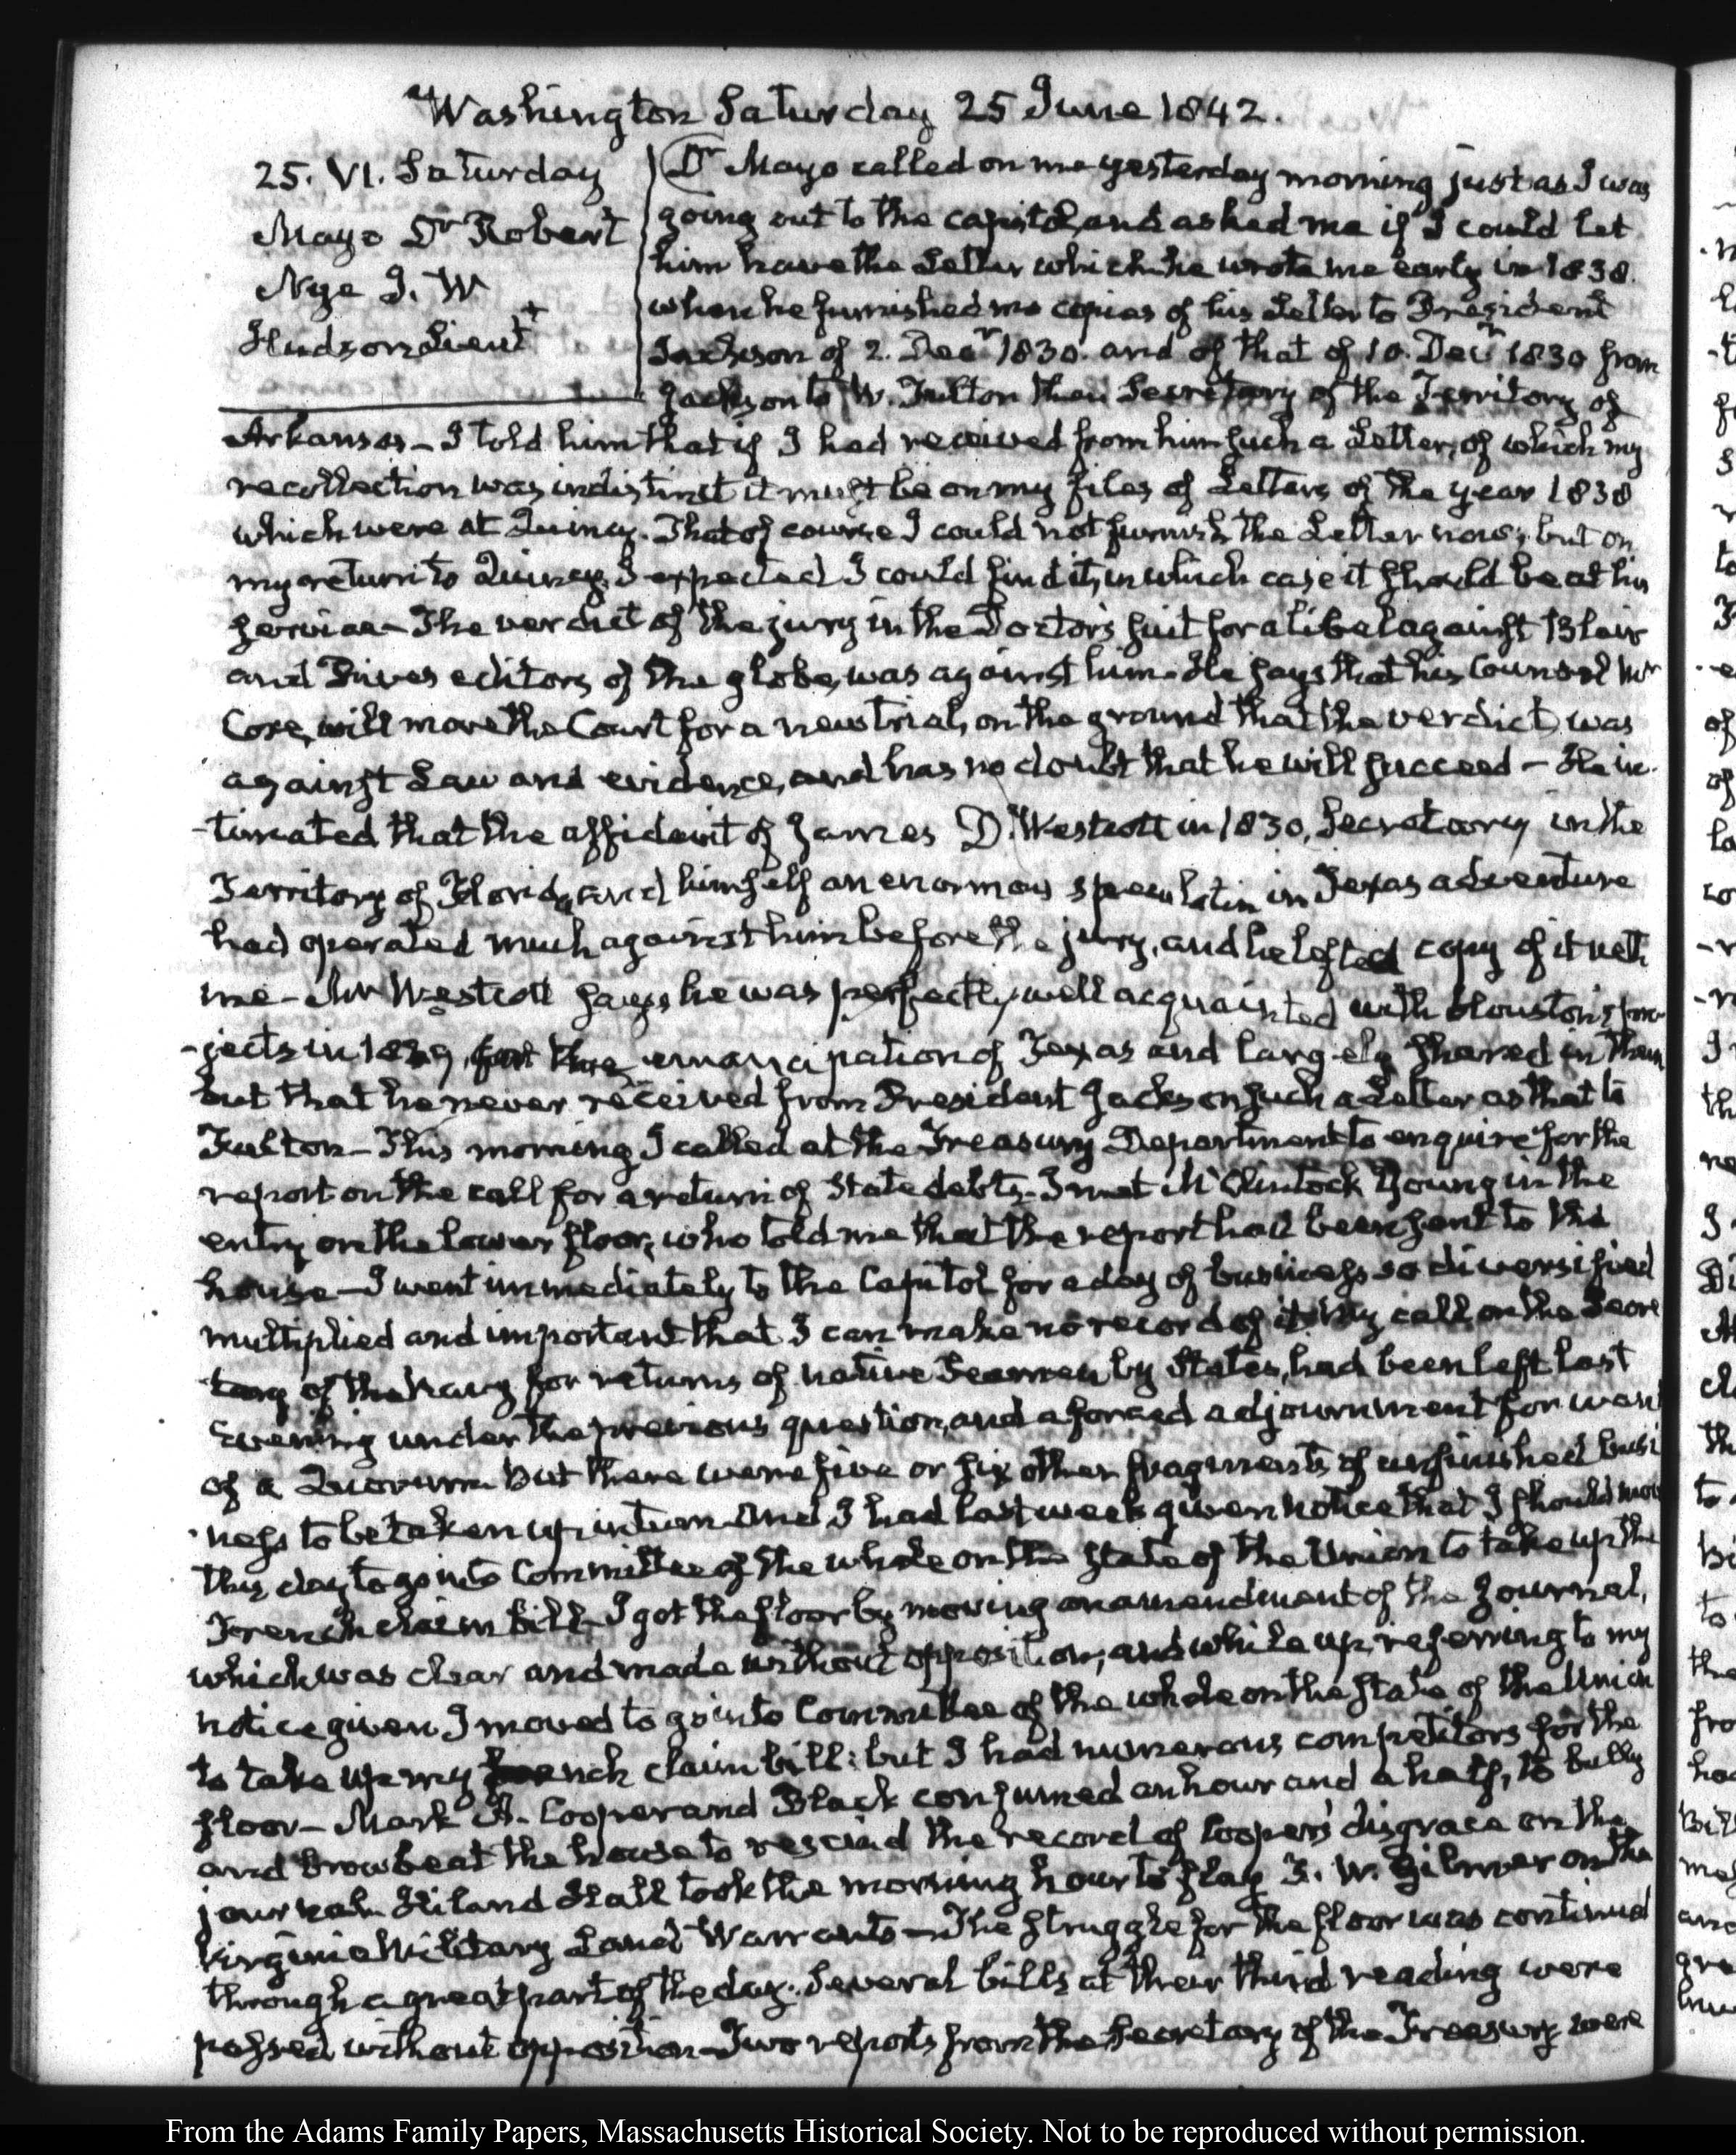 Washington Saturday 25 June 1842.
25. VI. Saturday
Mayo Dr Robert
Nye J. W +
Hudson Lieut
Dr Mayo called on me yesterday morning just as I was
going out to the capitol, and asked me if I could let
him have the Letter which he wrote me early in 1838.
when he furnished me copies of his Letter to President
Jackson of 2. Decr 1830. and of that of 10. Decr 1830 from
Jackson to W. Fulton then Secretary of the Territory of
Arkansas – I told him that if I had received from him such a Letter, of which my
recollection was indistinct it must be on my files of Letters of the year 1838
which were at Quincy. That of course I could not furnish the Letter now; but on
my return to Quincy, I expected I could find it, in which case it should be at his
service – The verdict of the jury in the Doctor's suit for a libel against Blair
and Rives editors of the globe, was against him. He says that his Counsel Mr
Coxe, will move the Court for a new trial, on the ground that the verdict, was
against Law and evidence, and has no doubt that he will succeed – He in-
-timated that the affidavit of James D. Westcott in 1830, Secretary in the
Territory of Florida, and himself an enormous speculator in Texas adventure
had operated much against him before the jury, and he left a copy of it with
me – Mr Westcott says he was perfectly well acquainted with Houston's pro-
-jects in 1829, for the emancipation of Texas and largely shared in them
but that he never received from President Jackson such a Letter as that to
Fulton – This morning I called at the Treasury Department to enquire for the
report on the call for a return of State debts. I met McClintock Young in the
entry on the lower floor, who told me that the report had been sent to the
house – I went immediately to the Capitol for a day of business so diversified
multiplied and important that I can make no record of it. My call on the Secre
tary of the Navy for returns of native Seamen by States, had been left last
Evening under the previous question, and a forced adjournment for want
of a Quorum. But there were five or six other fragments of unfinished busi
-ness to be taken up in turn. And I had last week given notice that I should move
this day to go into Committee of the whole on the state of the Union to take up the
French claim bill. I got the floor by moving an amendment of the Journal,
which was clear and made without opposition; and while up, referring to my
notice given I moved to go into Committee of the whole on the state of the Union
to take up my french claim bill: but I had numerous competitors for the
floor – Mark A. Cooper and Black consumed an hour and a half, to bully
and browbeat the house to rescind the record of Cooper's disgrace on the
journal. Hiland Hall took the morning hour to flay T. W. Gilmer on the
Virginia Military Land Warrants – The struggle for the floor was continued
through a great part of the day. Several bills at their third reading were
passed without opposition – Two reports from the Secretary of the Treasury were
From the Adams Family Papers, Massachusetts Historical Society. Not to be reproduced without permission.